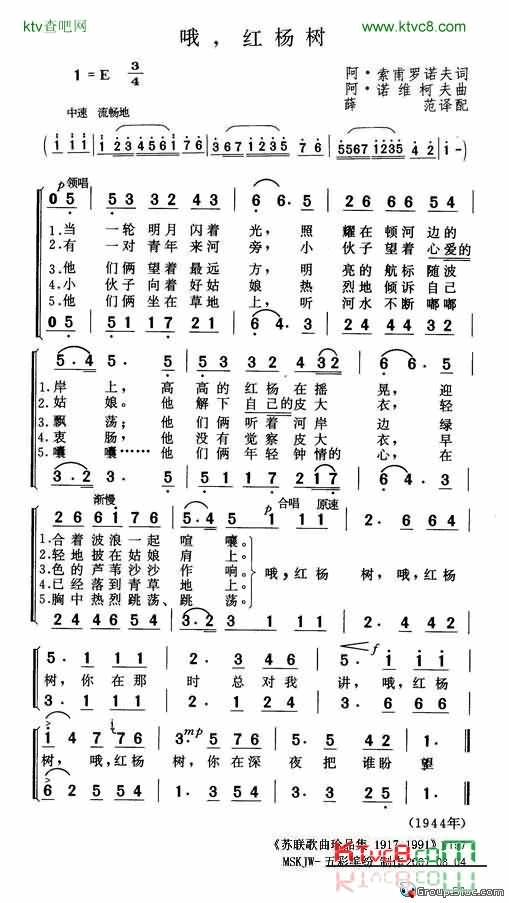 ktv查吧网
www.ktvc8.com
哦，红杨树
1=E 3/4
阿·索甫罗诺夫词
阿·诺维柯夫曲
薛范译配
中速 流畅地
p 领唱
0 5 5 3 3 3 2 4 3 6 6. 5 2 6 6 6 5 4
1.当一轮明月闪着光，照耀在顿河边的
2.有一对青年来河旁，小伙子望着心爱的
3.他们俩望着最远方，明亮的航标随波
4.小伙子向着好姑娘热烈地倾诉自己
5.他们俩坐在草地上，听河水不断嘟嘟
0 5 5 1 1 1 7 2 1 6 4. 3 2 6 4 4 3 2
5. 4 5. 5 5 3 3 3 2 4 3 2 6 6. 5
1.岸上，高高的红杨在摇晃，迎
2.姑娘。他解下自己的皮大衣，轻
3.飘荡；他们俩听着河岸边绿
4.衷肠，他没有觉察皮大衣，早
5.囔囔……他们俩年轻钟情的心，在
3. 2 3. 5 5 1 1 1 7 2 1 6 4. 3
渐慢 p 合唱 原速
2 6 6 1 7 6 5. 4 5 1 1 1 2. 6 6 4
1.合着波浪一起喧嚷。
2.轻地披在姑娘肩上。
3.色的芦苇沙沙作响。
4.已经落到青草地上。
5.胸中热烈跳荡、跳荡。
哦，红杨树，哦，红杨
2 4 4 6 5 4 3. 2 3 1 1 1 2. 6 6 4
f
5. 1 1 1 2. 3 4 6 5. 1 1 1
树，你在那时总对我讲，哦，红杨
3. 1 1 1 2. 2 2 4 3. 1 1 1
mp
1 4 7 7 6 3. 5 7 6 5 4 2 1.
树，哦，红杨树，你在深夜把谁盼望
6 2 5 5 4 3. 5 5 4 3 2 2 1.
（1944年）
《苏联歌曲珍品集 1917-1991》 P197